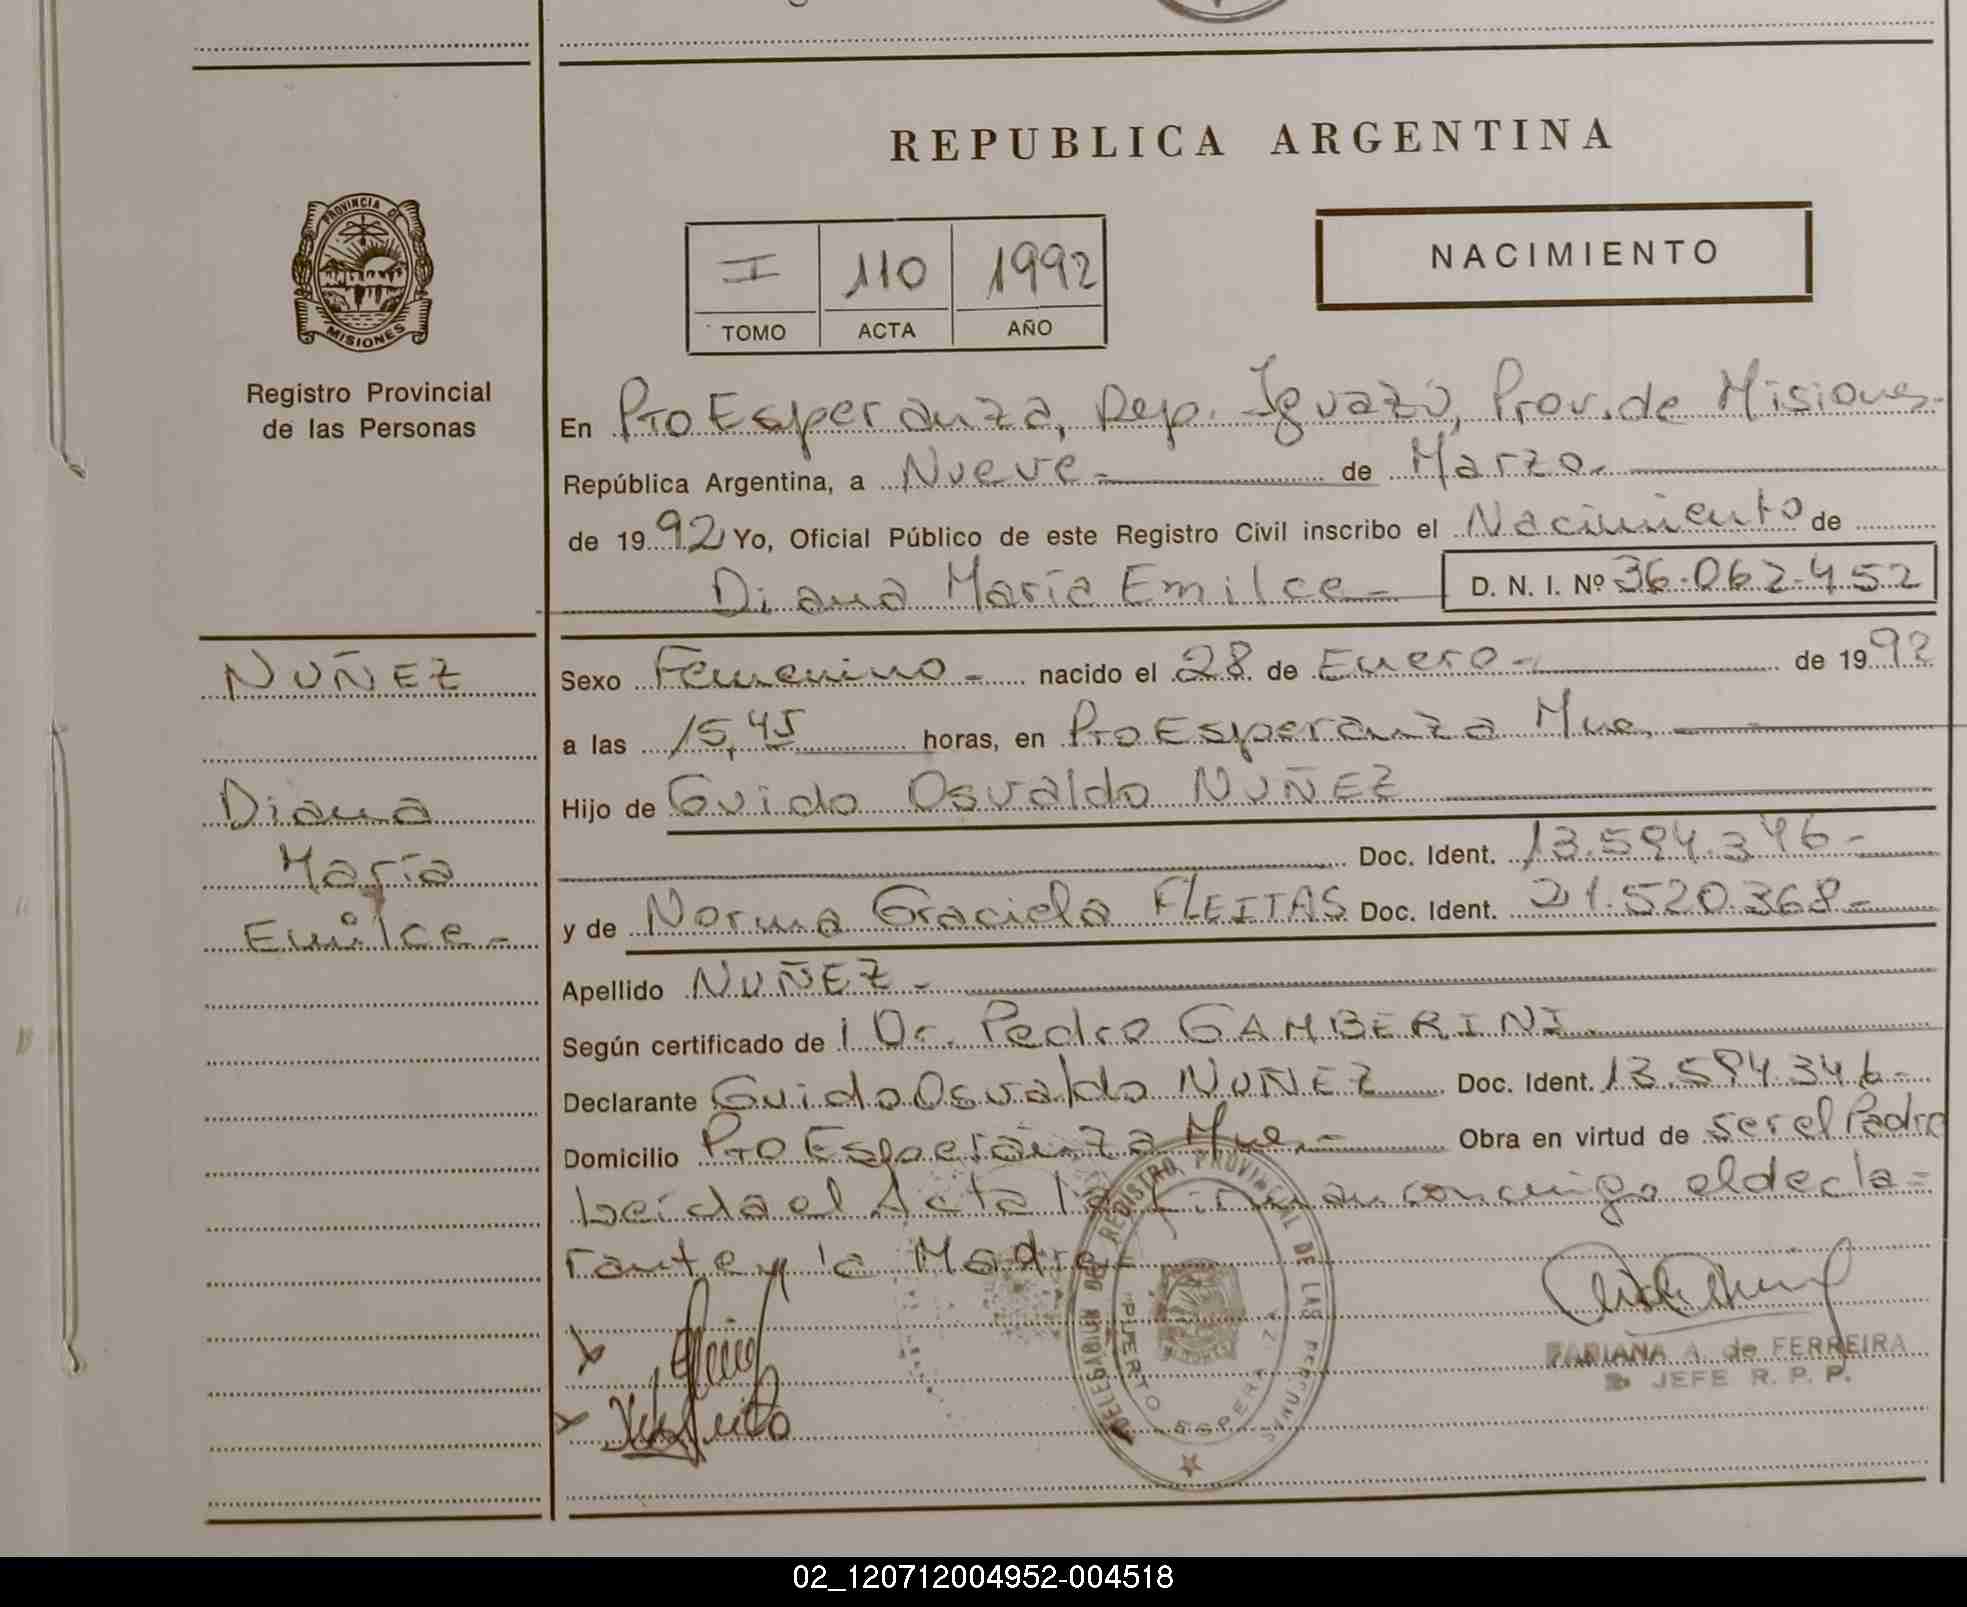 REPUBLICA ARGENTINA
PROVINCIA DE
MISIONES
Registro Provincial
de las Personas
I 110 1992
TOMO ACTA AÑO
NACIMIENTO
En Pto Esperanza, Dep. Iguazú, Prov. de Misiones.-
República Argentina, a Nueve - de Marzo.-
de 1992 Yo, Oficial Público de este Registro Civil inscribo el Nacimiento de
Diana María Emilce - D. N. I. Nº 36.062.452
NUÑEZ
Diana
María
Emilce -
Sexo Femenino - nacido el 28 de Enero - de 1992
a las 15,45 horas, en Pto Esperanza Mnes.
Hijo de Guido Osvaldo NUÑEZ
Doc. Ident. 13.594.346 -
y de Norma Graciela FLEITAS Doc. Ident. 21.520.368 -
Apellido NUÑEZ -
Según certificado de Dr. Pedro GAMBERINI.
Declarante Guido Osvaldo NUÑEZ Doc. Ident. 13.594.346 -
Domicilio Pto Esperanza Mnes. - Obra en virtud de ser el Padre
Leída el Acta la firman conmigo el decla=
rante y la Madre
DELEGACION DEL REGISTRO PROVINCIAL DE LAS PERSONAS
PUERTO ESPERANZA
MISIONES
FABIANA A. de FERREIRA
JEFE R. P. P.
02_120712004952-004518